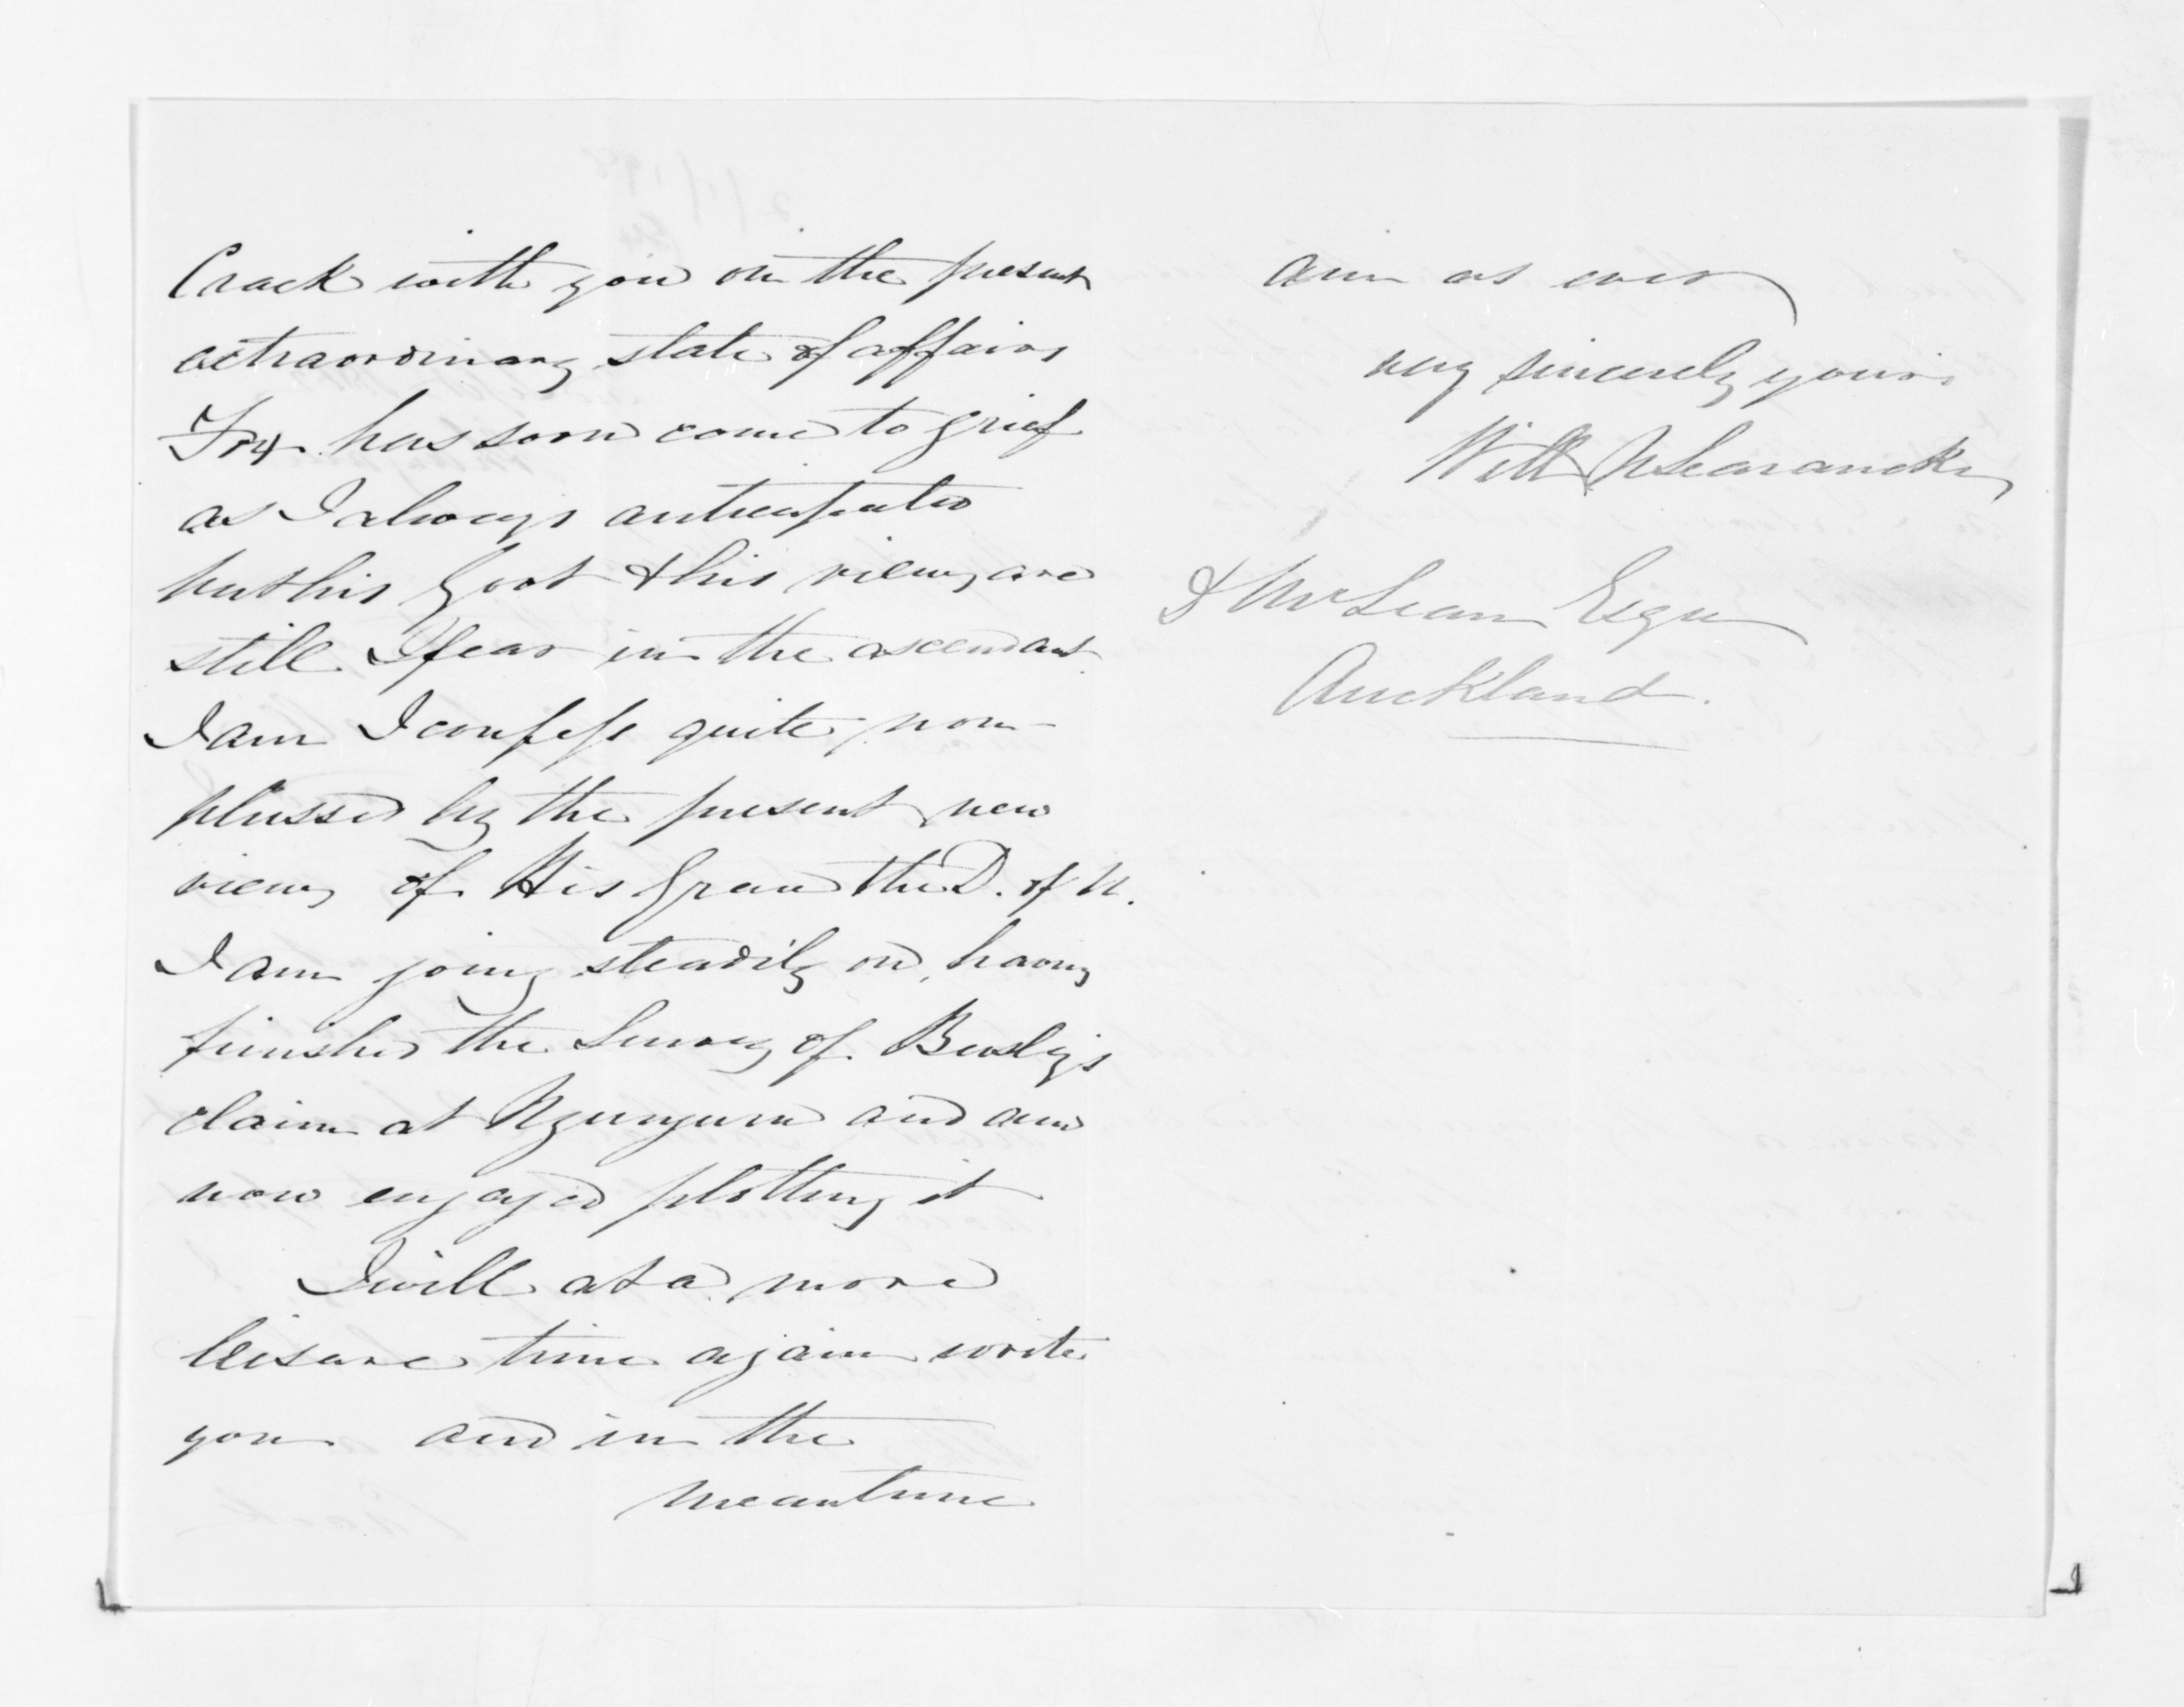 Crack with you on the present
extraordinary state of affairs
Fox has soon come to grief
as I always anticipated
but his Govt & his views are
still I fear in the ascendant.
I am I confess quite non-
plussed by the present new
views of His Grace the D. of N.
I am going steadily on, having
finished the Survey of Busby's
claim at Ngunguru and am
now engaged plotting it
I will at a more
leisure time again write
you and in the
meantime
am as ever
very sincerely yours
Will N Searancke
D McLean Esqre
Auckland.